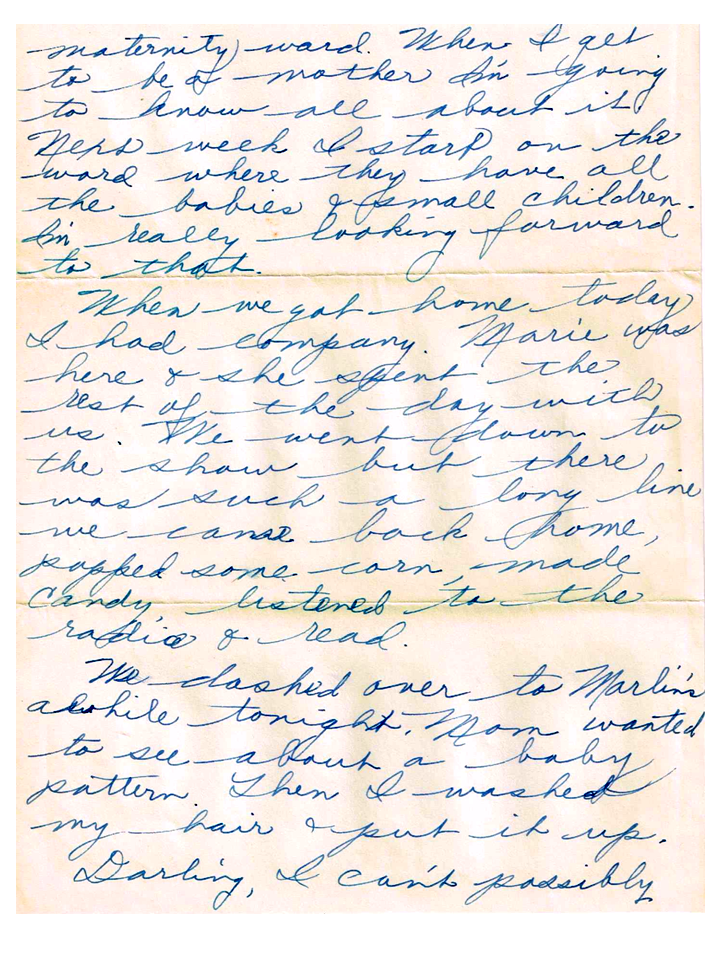 maternity ward. When I get
to be a mother I'm going
to know all about it
Next week I start on the
ward where they have all
the babies & small children.
I'm really looking forward
to that.
When we got home today
I had company. Marie was
here & she spent the
rest of the day with
us. We went down to
the show but there
was such a long line
we came back home,
popped some corn, made
candy, listened to the
radio & read.
We dashed over to Marlin's
awhile tonight. Mom wanted
to see about a baby
pattern. Then I washed
my hair & put it up.
Darling, I can't possibly